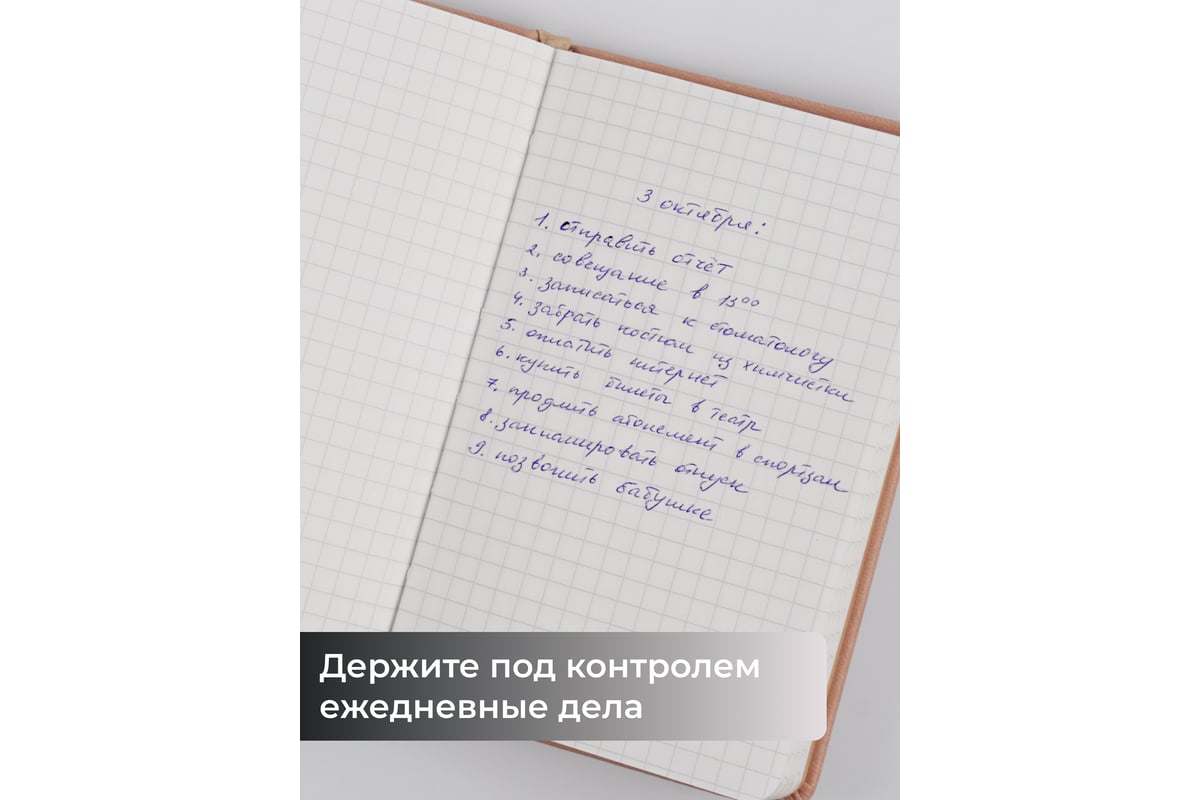 3 октября:
1. отправить отчёт
2. совещание в 15⁰⁰
3. записаться к стоматологу
4. забрать костюм из химчистки
5. оплатить интернет
6. купить билеты в театр
7. продлить абонемент в спортзал
8. запланировать отпуск
9. позвонить бабушке
Держите под контролем
ежедневные дела